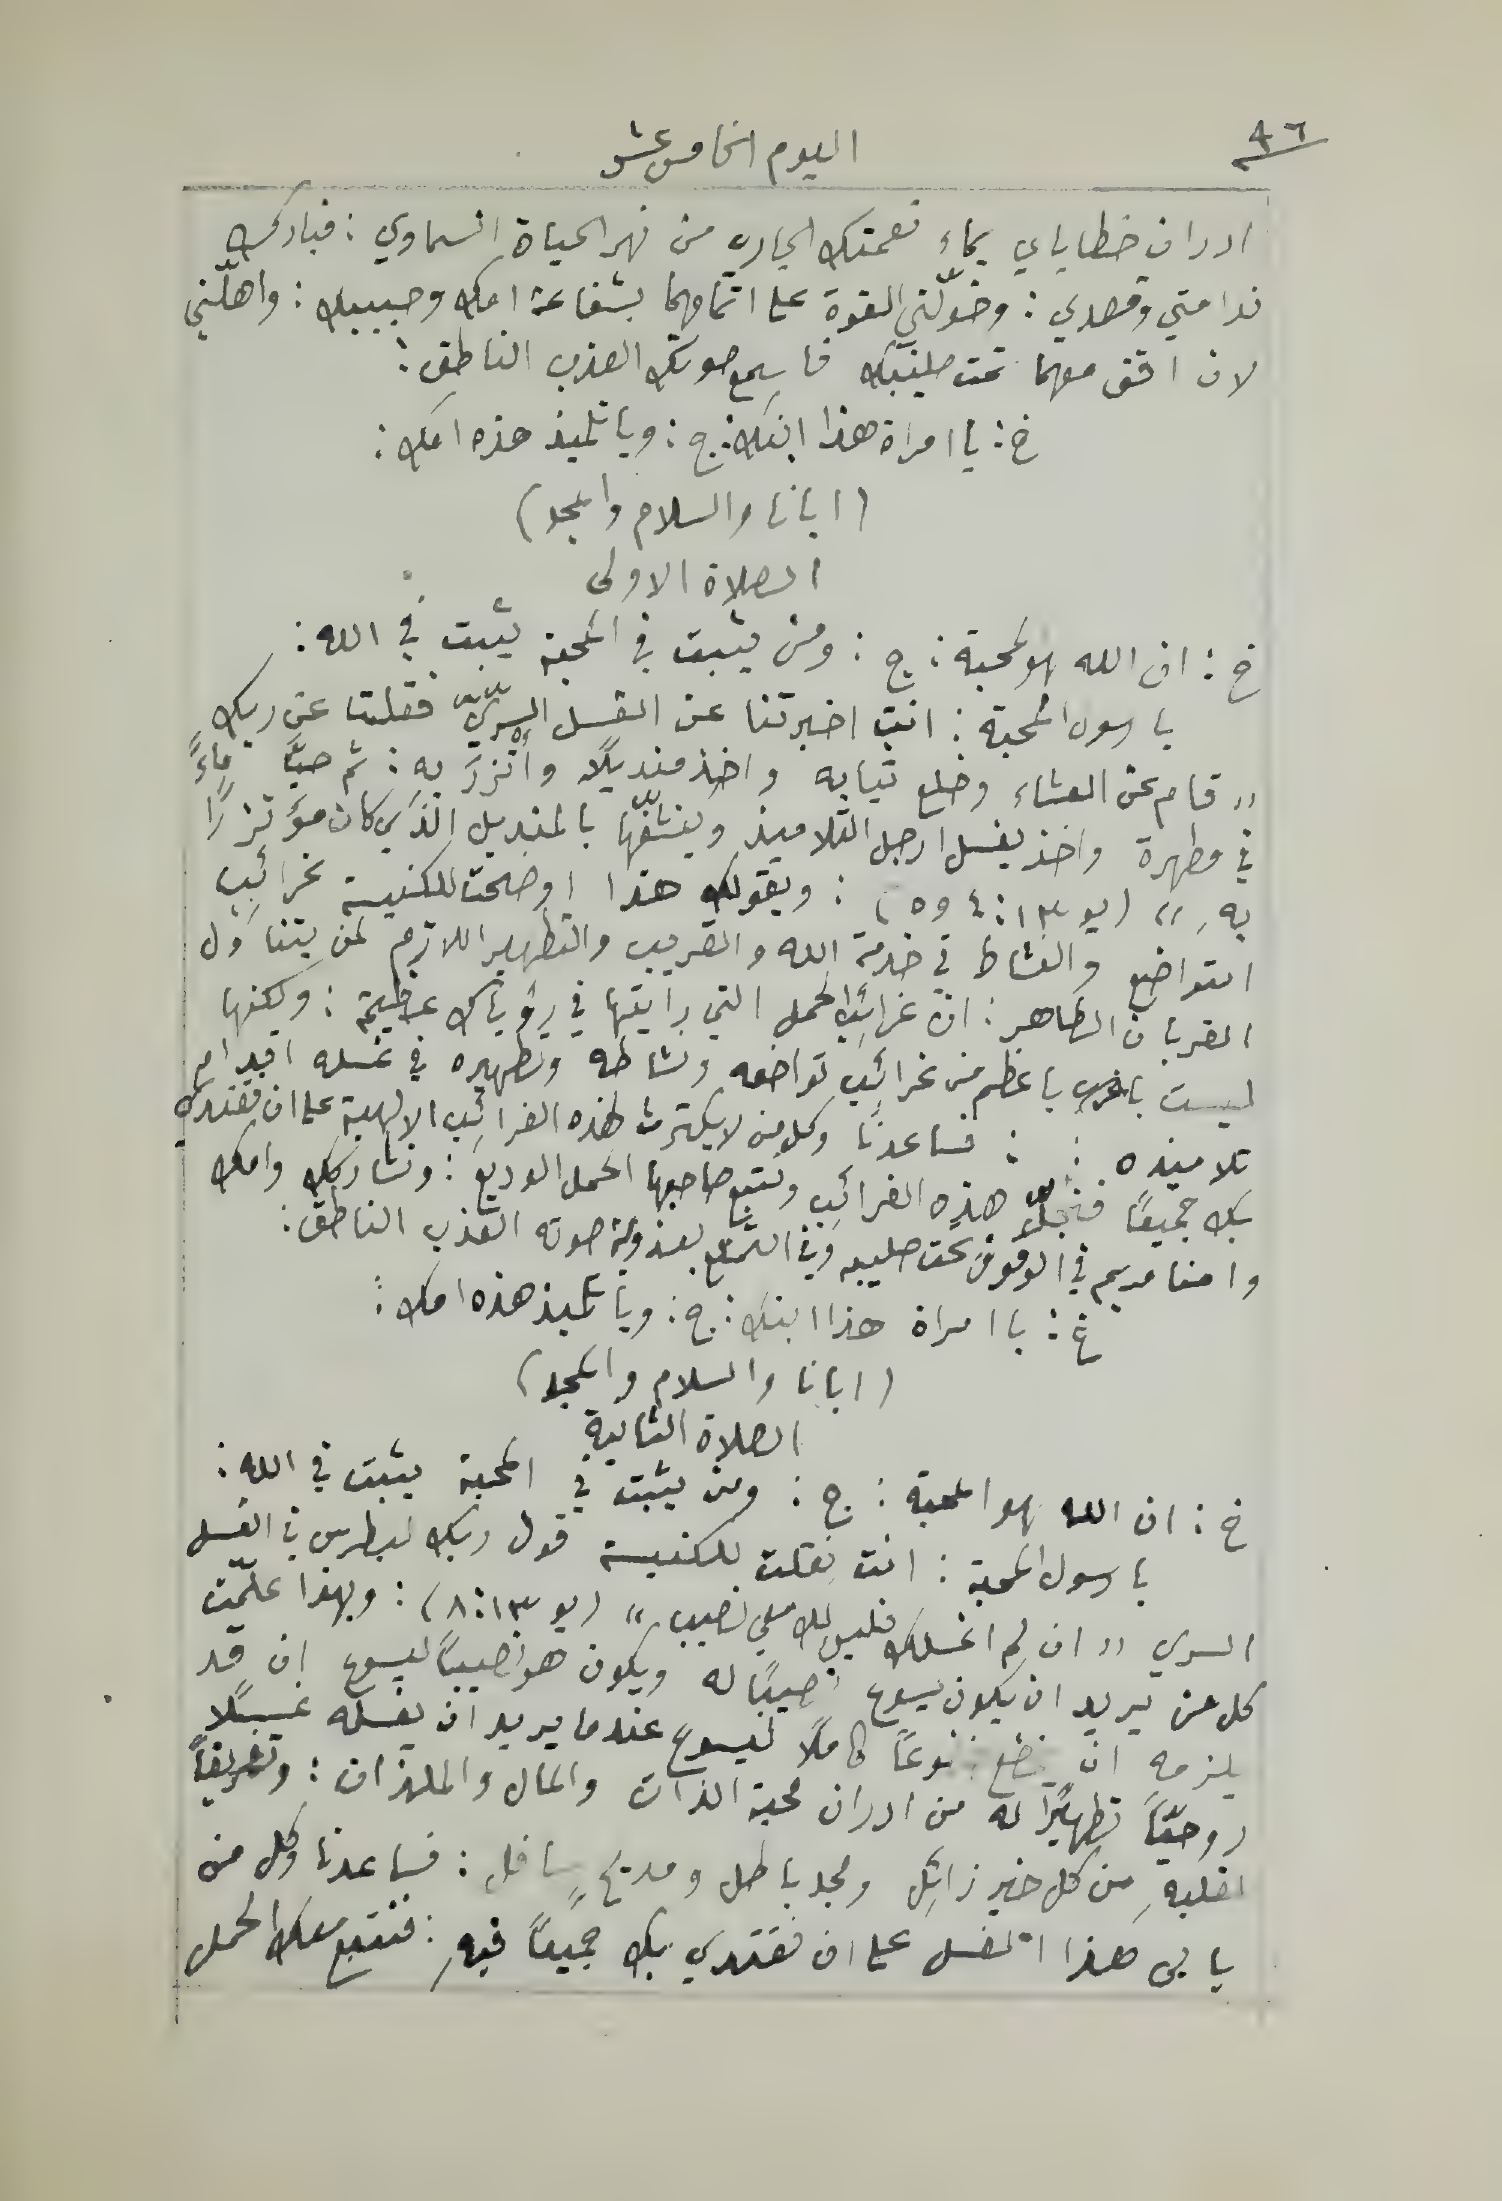 ٤٦
اليوم الخامس عشر
ادران خطاياي بماء نعمتك الجاري من نهر الحياة السماوي : فبارك
ندامتي وقصدي : وخوّلني القوة على اتمامهما بشفاعة امك وحبيبك : واهلّني
لان اقف معهما تحت صليبك فاسمع صوتك العذب الناطق :
خ : يا امراة هذا ابنك : ج : ويا تلميذ هذه امك :
(ابانا والسلام والمجد)
الصلاة الاولى
خ : ان الله هو المحبة : ج : ومن يثبت في المحبة يثبت في الله :
يا رسول المحبة : انت اخبرتنا عن الغسل السريّ فقلت عن ربك
" قام عن العشاء وخلع ثيابه واخذ منديلًا وأتزرَ به : ثم صبَّ ماءً
في مطهرة واخذ يغسل ارجل التلاميذ وينشّفها بالمنديل الذي كان مؤتزرًا
بهِ " (يو ١٣ : ٤ و ٥) : وبقولك هذا اوضحت للكنيسة غرائب
التواضع والنشاط في خدمة الله والقريب والتطهير اللازم لمن يتناول
القربان الطاهر : ان غرائب الحمل التي رايتها في رؤياك عظيمة : ولكنها
ليست باغرب باعظم من غرائب تواضعه ونشاطه وتطهيره في غسله اقدام
تلاميذه : : فساعدنا وكل من لا يكترث لهذه الغرائب الالهية على ان نقتدي
بك جميعًا فنجلّ هذه الغرائب ونتبع صاحبها الحمل الوديع : ونشاركك وامك
وامنا مريم في الوقوف تحت صليبه وفي التمتع بعذوبة صوته العذب الناطق :
خ : يا امراة هذا ابنك : ج : ويا تلميذ هذه امك :
(ابانا والسلام والمجد)
الصلاة الثانية
خ : ان الله هو المحبة : ج : ومن يثبت في المحبة يثبت في الله :
يا رسول المحبة : انت نقلت للكنيسة قول ربك لبطرس في الغسل
السري " ان لم اغسلك فليس لك معي نصيب " (يو ١٣ : ٨) : وبهذا علّمت
كل من يريد ان يكون يسوع نصيبًا له ويكون هو نصيبًا ليسوع ان قد
يلزمه ان يخضع خضوعًا كاملًا ليسوع عندما يريد ان يغسله غسلًا
روحيًّا تطهيرًا له من ادران محبة الذات والمال والملذات : وتفريغًا
لقلبهِ من كل خير زائل ومجد باطل ومديحٍ سافل : فساعدنا وكل من
يابى هذا الغسل على ان نقتدي بك جميعًا فيهِ : فنتبع معك الحمل